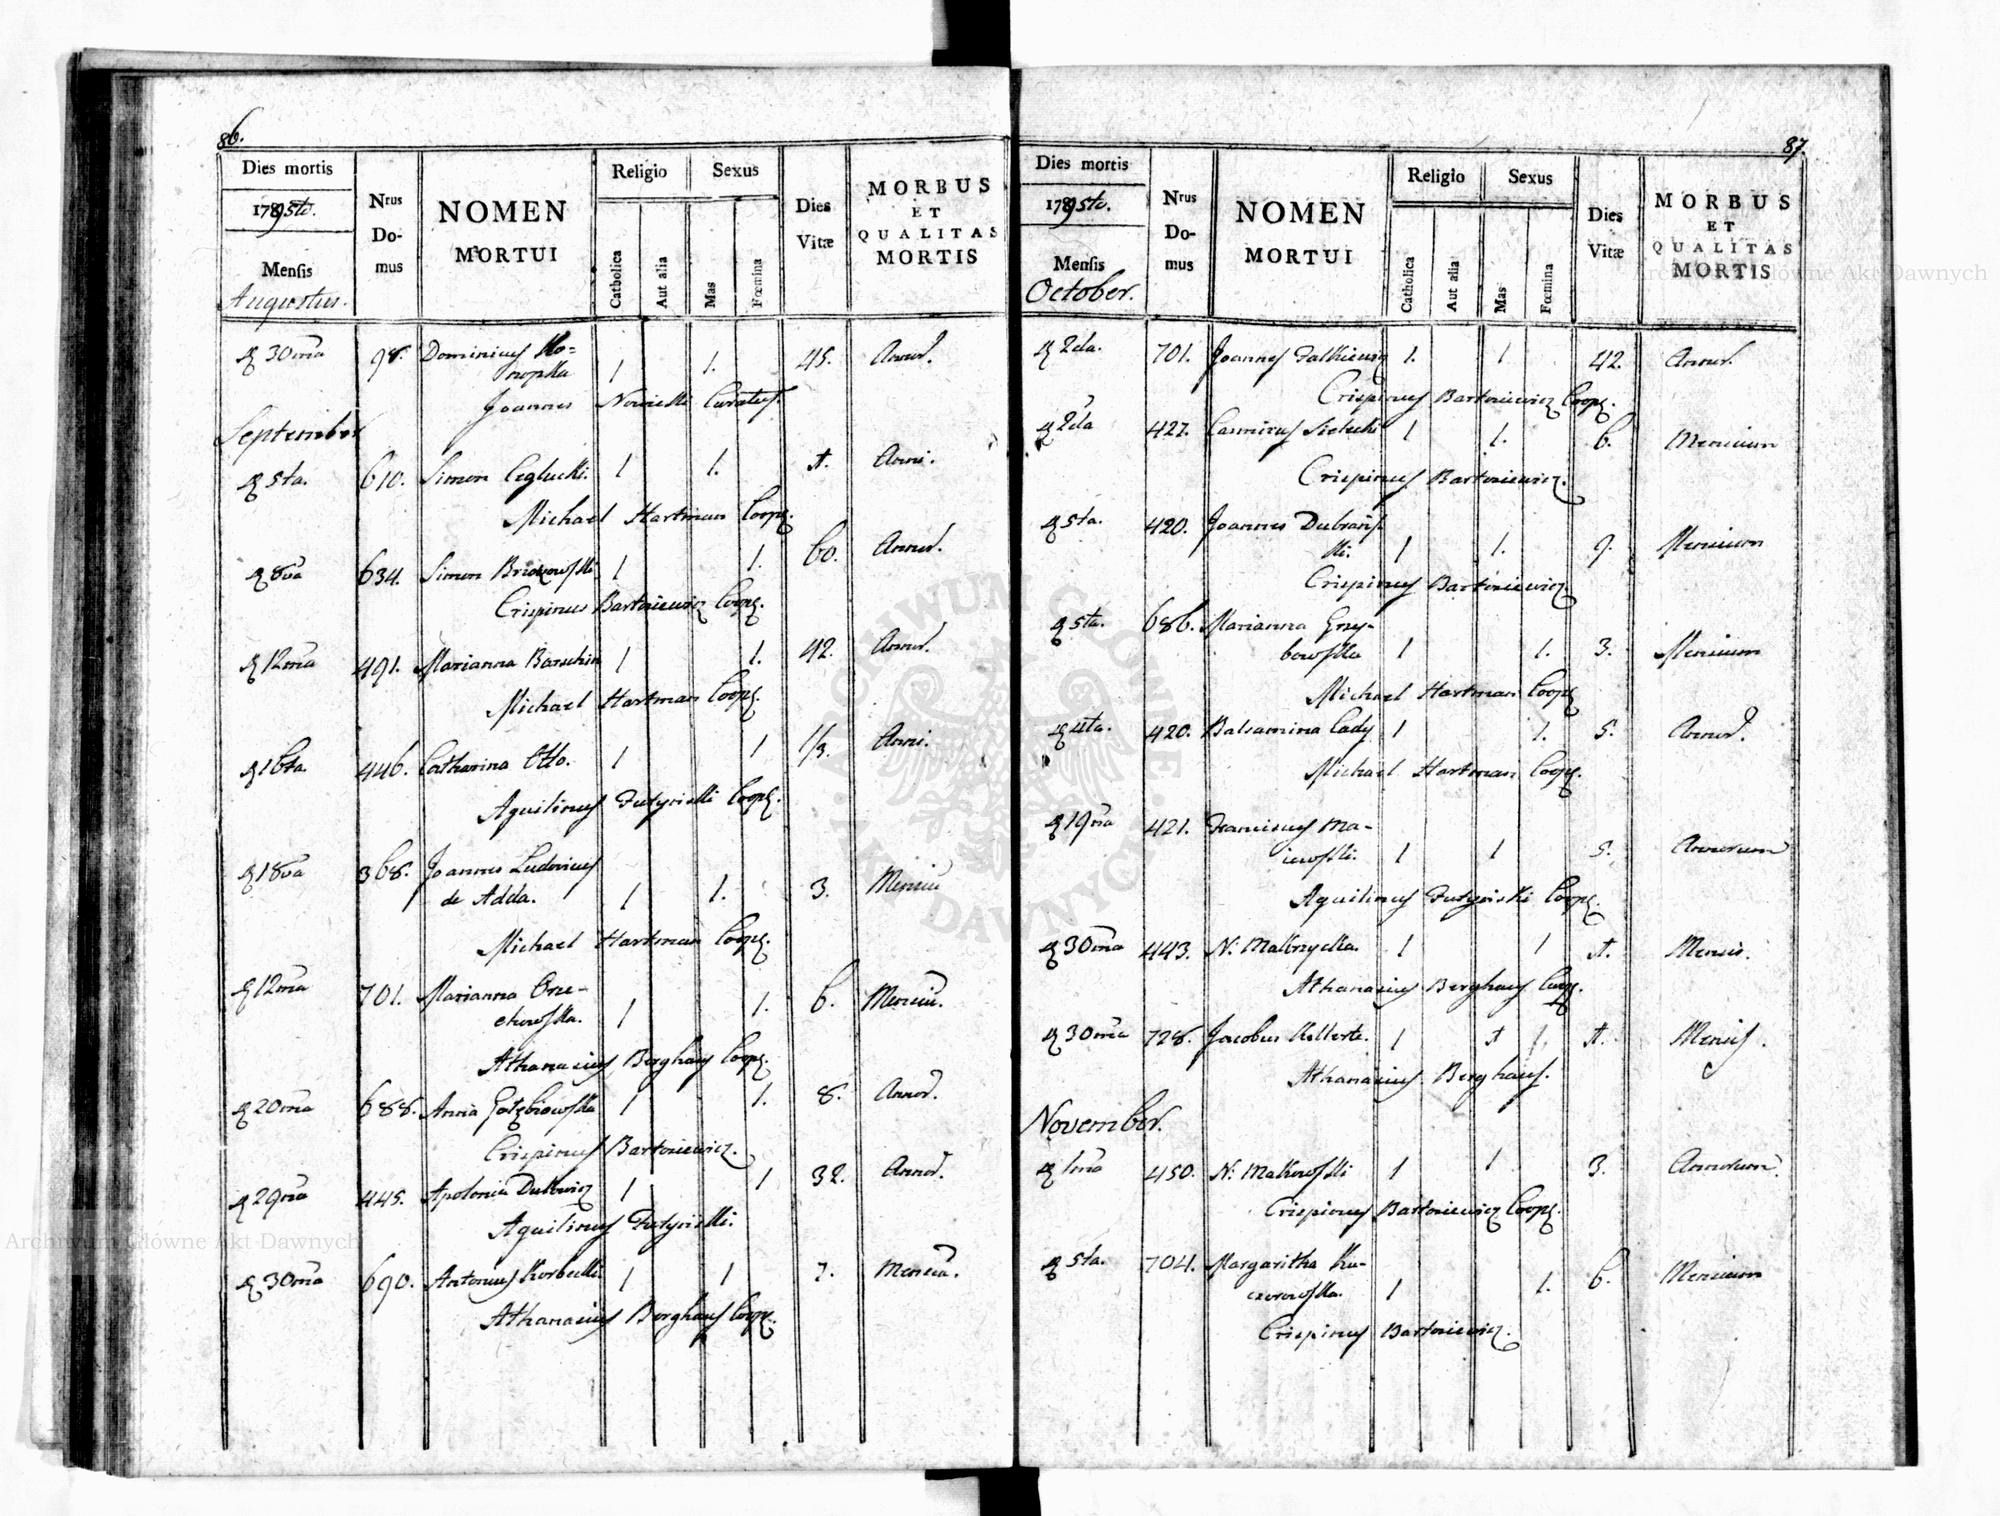 86.
Dies mortis
1795to.
Mensis
Augustus.
Nrus
Do-
mus
NOMEN
MORTUI
Religio
Sexus
Catholica
Aut alia
Mas
Fœmina
Dies
Vitæ
MORBUS
ET
QUALITAS
MORTIS
30ma 98. Dominicus
1 1. 45. Annor.
Joannes Curatus
September
5ta. 610. Simon 1 1. Anni.
Michael Hartman Coop.
8va 634. Simon 1 1. 60. Annor.
Crispinus Bartoniewicz Coop.
12ma 491. Marianna 1 1. 42. Annor.
Michael Hartman Coop.
16ta 446. Catharina Otto. 1 1 1/3. Anni.
Aquilinus Coop.
18va 368. Joannes Ludovicus
de Adda. 1 1. 3. Mensiu
Michael Hartman Coop.
12ma 701. Marianna Orze-
chowska. 1 1. 6. Mensiu.
Athanasius Berghaus Coop.
20ma 688. Anna 1 1. 8. Annor.
Crispinus Bartoniewicz.
29na 445. Apolonia 1 1 32. Annor.
Aquilinus
30ma 690. Antonius 1 1 7. Mensiu.
Athanasius Berghaus Coop.
87.
Dies mortis
1795to.
Mensis
October.
Nrus
Do-
mus
NOMEN
MORTUI
Religio
Sexus
Catholica
Aut alia
Mas
Fœmina
Dies
Vitæ
MORBUS
ET
QUALITAS
MORTIS
2da. 701. Joannes 1. 1. 42. Annor.
Crispinus Bartoniewicz Coop.
2da 427. Casimirus 1 1. 6. Mensium
Crispinus Bartoniewicz.
5ta. 420. Joannes Dubrans
ki. 1 1. 9. Mensium
Crispinus Bartoniewicz.
5ta. 686. Marianna Grzy-
bowska 1 1. 3. Mensium
Michael Hartman Coop.
4ta. 420. Balsamina Lady 1 1. 5. Annor.
Michael Hartman Coop.
19na 421. Franciscus Ma-
iewski. 1 1 5. Annorum
Aquilinus Coop.
30ma 443. N: 1 1 Mensis.
Athanasius Berghaus Coop.
30ma 728. Jacobus 1 1. Mensis.
Athanasius Berghaus.
November.
1ma 450. N: Malkowski 1 1 3. Annorum.
Crispinus Bartoniewicz Coop.
5ta. 704. Margaritha Ku-
1 1. 6. Mensium
Crispinus Bartoniewicz.
ARCHIWUM GŁÓWNE
AKT DAWNYCH
Archiwum Główne Akt Dawnych
Archiwum Główne Akt Dawnych